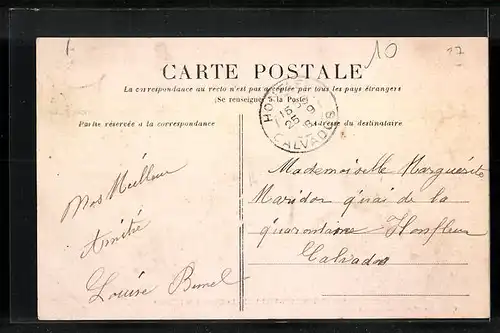 10
27
CARTE POSTALE
La correspondance au recto n'est pas acceptée par tous les pays étrangers
(Se renseigner à la Poste)
Partie réservée à la correspondance
Adresse du destinataire
HONFLEUR
CALVADOS
Mes Meilleur
Amitié
Louise
Mademoiselle Marguerite
Maridor quai de la
quarantaine Honfleur
Calvados